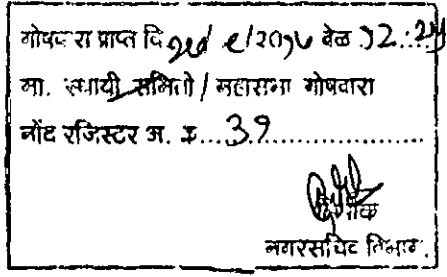 गोषवारा प्राप्त दि २०१७ वेळ १२:
मा. स्थायी समिती / महासभा गोषवारा
नोंद रजिस्टर अ. क्र....39..................
लिपीक
नगरसचिव विभाग.